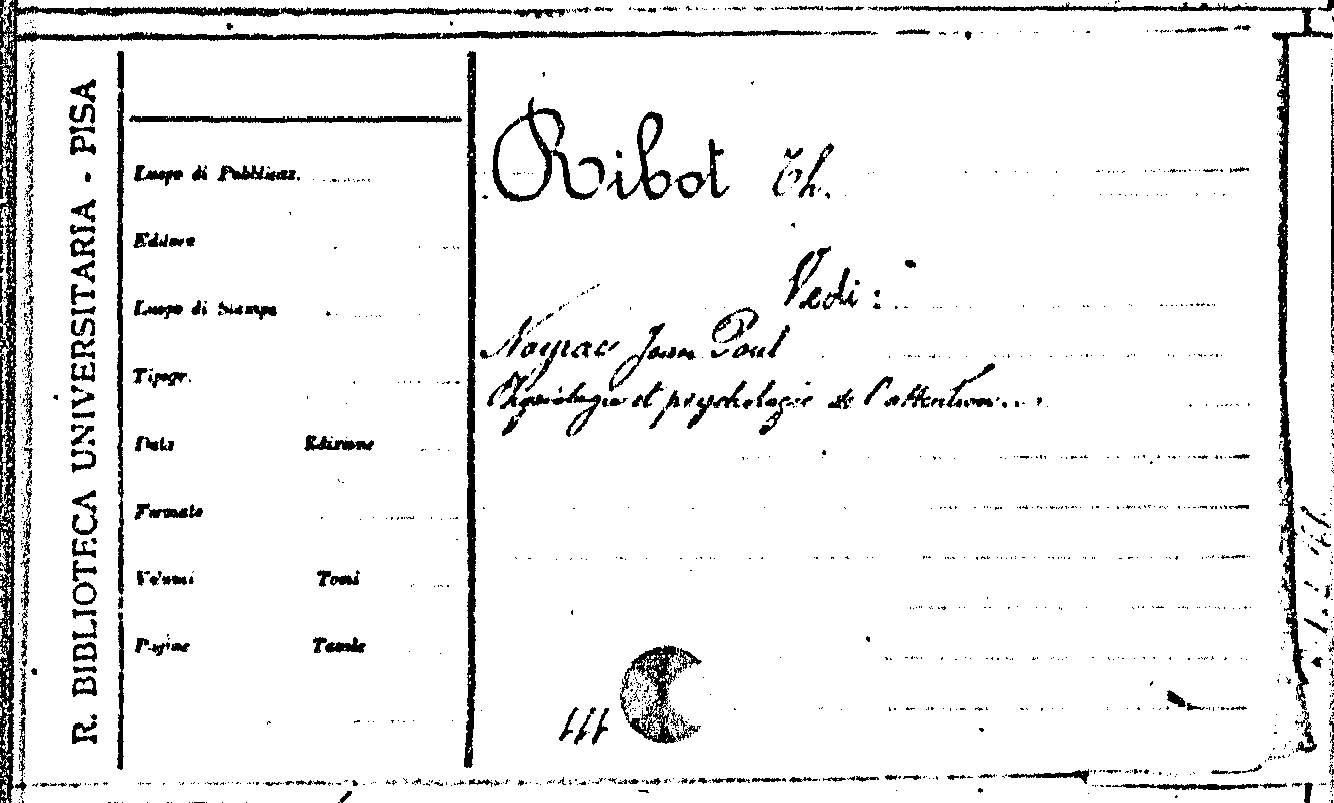 R. BIBLIOTECA UNIVERSITARIA - PISA
Luogo di Pubblicaz.
Editore
Luogo di Stampa
Tipogr.
Data Edizione
Formato
Volumi Tomi
Pagine Tavole
Ribot Th.
Vedi :
Nayrac Jean Paul
Physiologie et psychologie de l'attention...